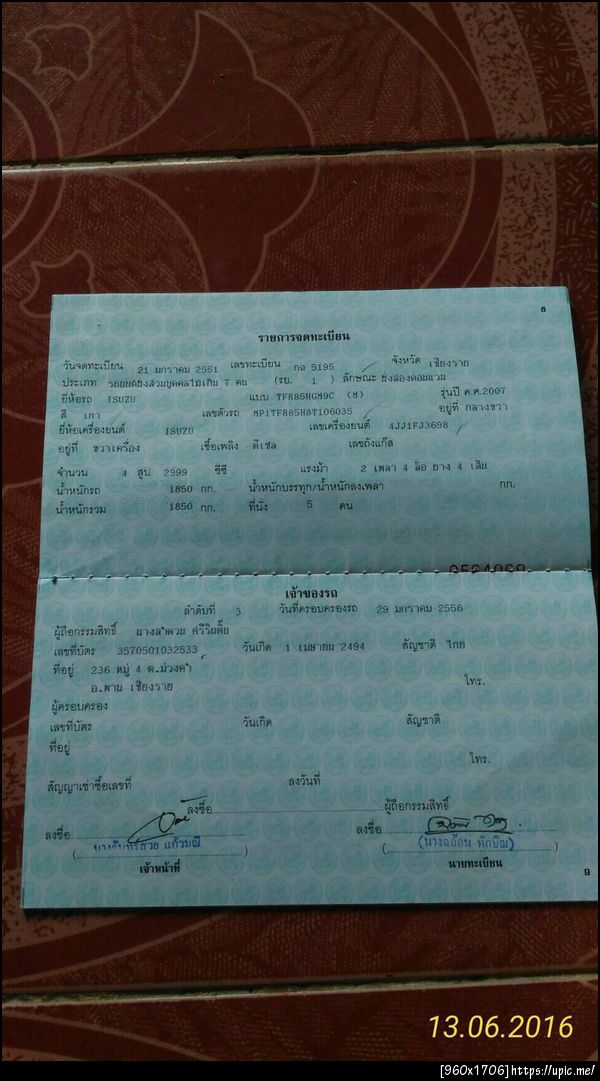 8
รายการจดทะเบียน
วันจดทะเบียน 21 มกราคม 2551 เลขทะเบียน กฉ 5195 จังหวัด เชียงราย
ประเภท รถยนต์นั่งส่วนบุคคลไม่เกิน 7 คน (รย. 1 ) ลักษณะ นั่งสองตอนแวน
ยี่ห้อรถ ISUZU แบบ TFR85HGM9C (M) รุ่นปี ค.ศ.2007
สี เทา เลขตัวรถ MP1TFR85H8T106035 อยู่ที่ กลางขวา
ยี่ห้อเครื่องยนต์ ISUZU เลขเครื่องยนต์ 4JJ1FJ3698
อยู่ที่ ขวาเครื่อง เชื้อเพลิง ดีเซล เลขถังแก๊ส
จำนวน 4 สูบ 2999 ซีซี แรงม้า 2 เพลา 4 ล้อ ยาง 4 เส้น
น้ำหนักรถ 1850 กก. น้ำหนักบรรทุก/น้ำหนักลงเพลา กก.
น้ำหนักรวม 1850 กก. ที่นั่ง 5 คน
เจ้าของรถ
ลำดับที่ 3 วันที่ครอบครองรถ 29 มกราคม 2556
ผู้ถือกรรมสิทธิ์ นางลำดวน ศรีรินต๊ะ
เลขที่บัตร 3570501032533 วันเกิด 1 เมษายน 2494 สัญชาติ ไทย
ที่อยู่ 236 หมู่ 4 ต.ม่วงคำ
อ.พาน เชียงราย โทร.
ผู้ครอบครอง
เลขที่บัตร วันเกิด สัญชาติ
ที่อยู่
โทร.
สัญญาเช่าซื้อเลขที่ ลงวันที่
ลงชื่อ ผู้ถือกรรมสิทธิ์
ลงชื่อ ลงชื่อ
แก้วมณี (นางฉอ้อน ทักษิณ)
เจ้าหน้าที่ นายทะเบียน
9
13.06.2016
[960x1706]https://upic.me/